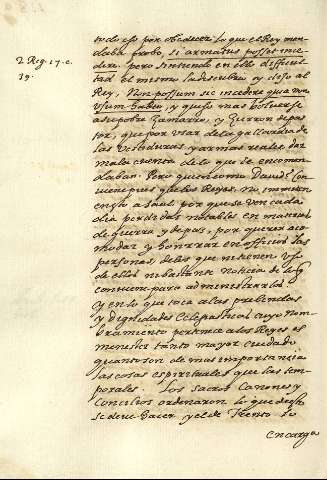 2 Reg. 17. c.
39.
todo eso por obedecer lo que el Rey man
daba probo, si armatus posset ince
dere. pero sintiendo en ello difficul
tad el mismo la descubrio y dixo al
Rey, Non possum sic incedere quia non
usum habeo, y quiso mas volverse
a su pobre Zamarra, y Zurron de pas
tor, que por usar de la gallardia de
las Vestiduras, y armas reales, dar
mala cuenta de lo que se encomen
daban. Pero quien como David.
pues que los Reyes, no imiten
en esto a Saul por que se ven cada
dia perdidas notables en materias
de guerra y de paz, por querer aco
modar y honrrar en officios las
personas, de los que ni tienen uso
de ellos ni bastante noticia de lo q
conviene para administrarlos
y en lo que toca a las prebendas
y dignidades Eclesiasticas cuyo nom
bramiento pertenece a los Reyes es
menester tanto mayor cuidado
quanto son de mas importancia
las cosas espirituales que las tem
porales. Los sacros Canones y
Concilios ordenaron lo que en esto
se deve hacer y el de Trento lo
encarga